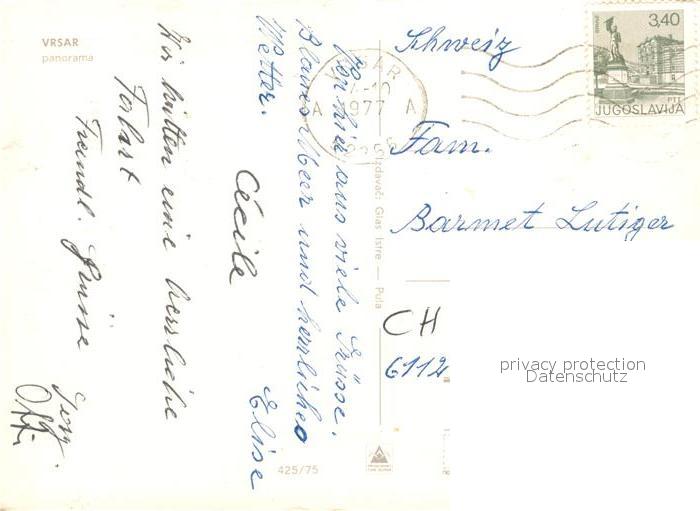 VRSAR
panorama
Von hier aus viele Grüsse.
Blaues Meer und herrliches
Wetter.
Elise
Cécile
Wir hatten eine herrliche
Freundl. Grüsse
Izdavač: Glas Istre — Pula
425/75
VRSAR
1977
A A
3,40
JUGOSLAVIJA
Schweiz
Fam.
Barmet Lutiger
CH
6112
privacy protection
Datenschutz